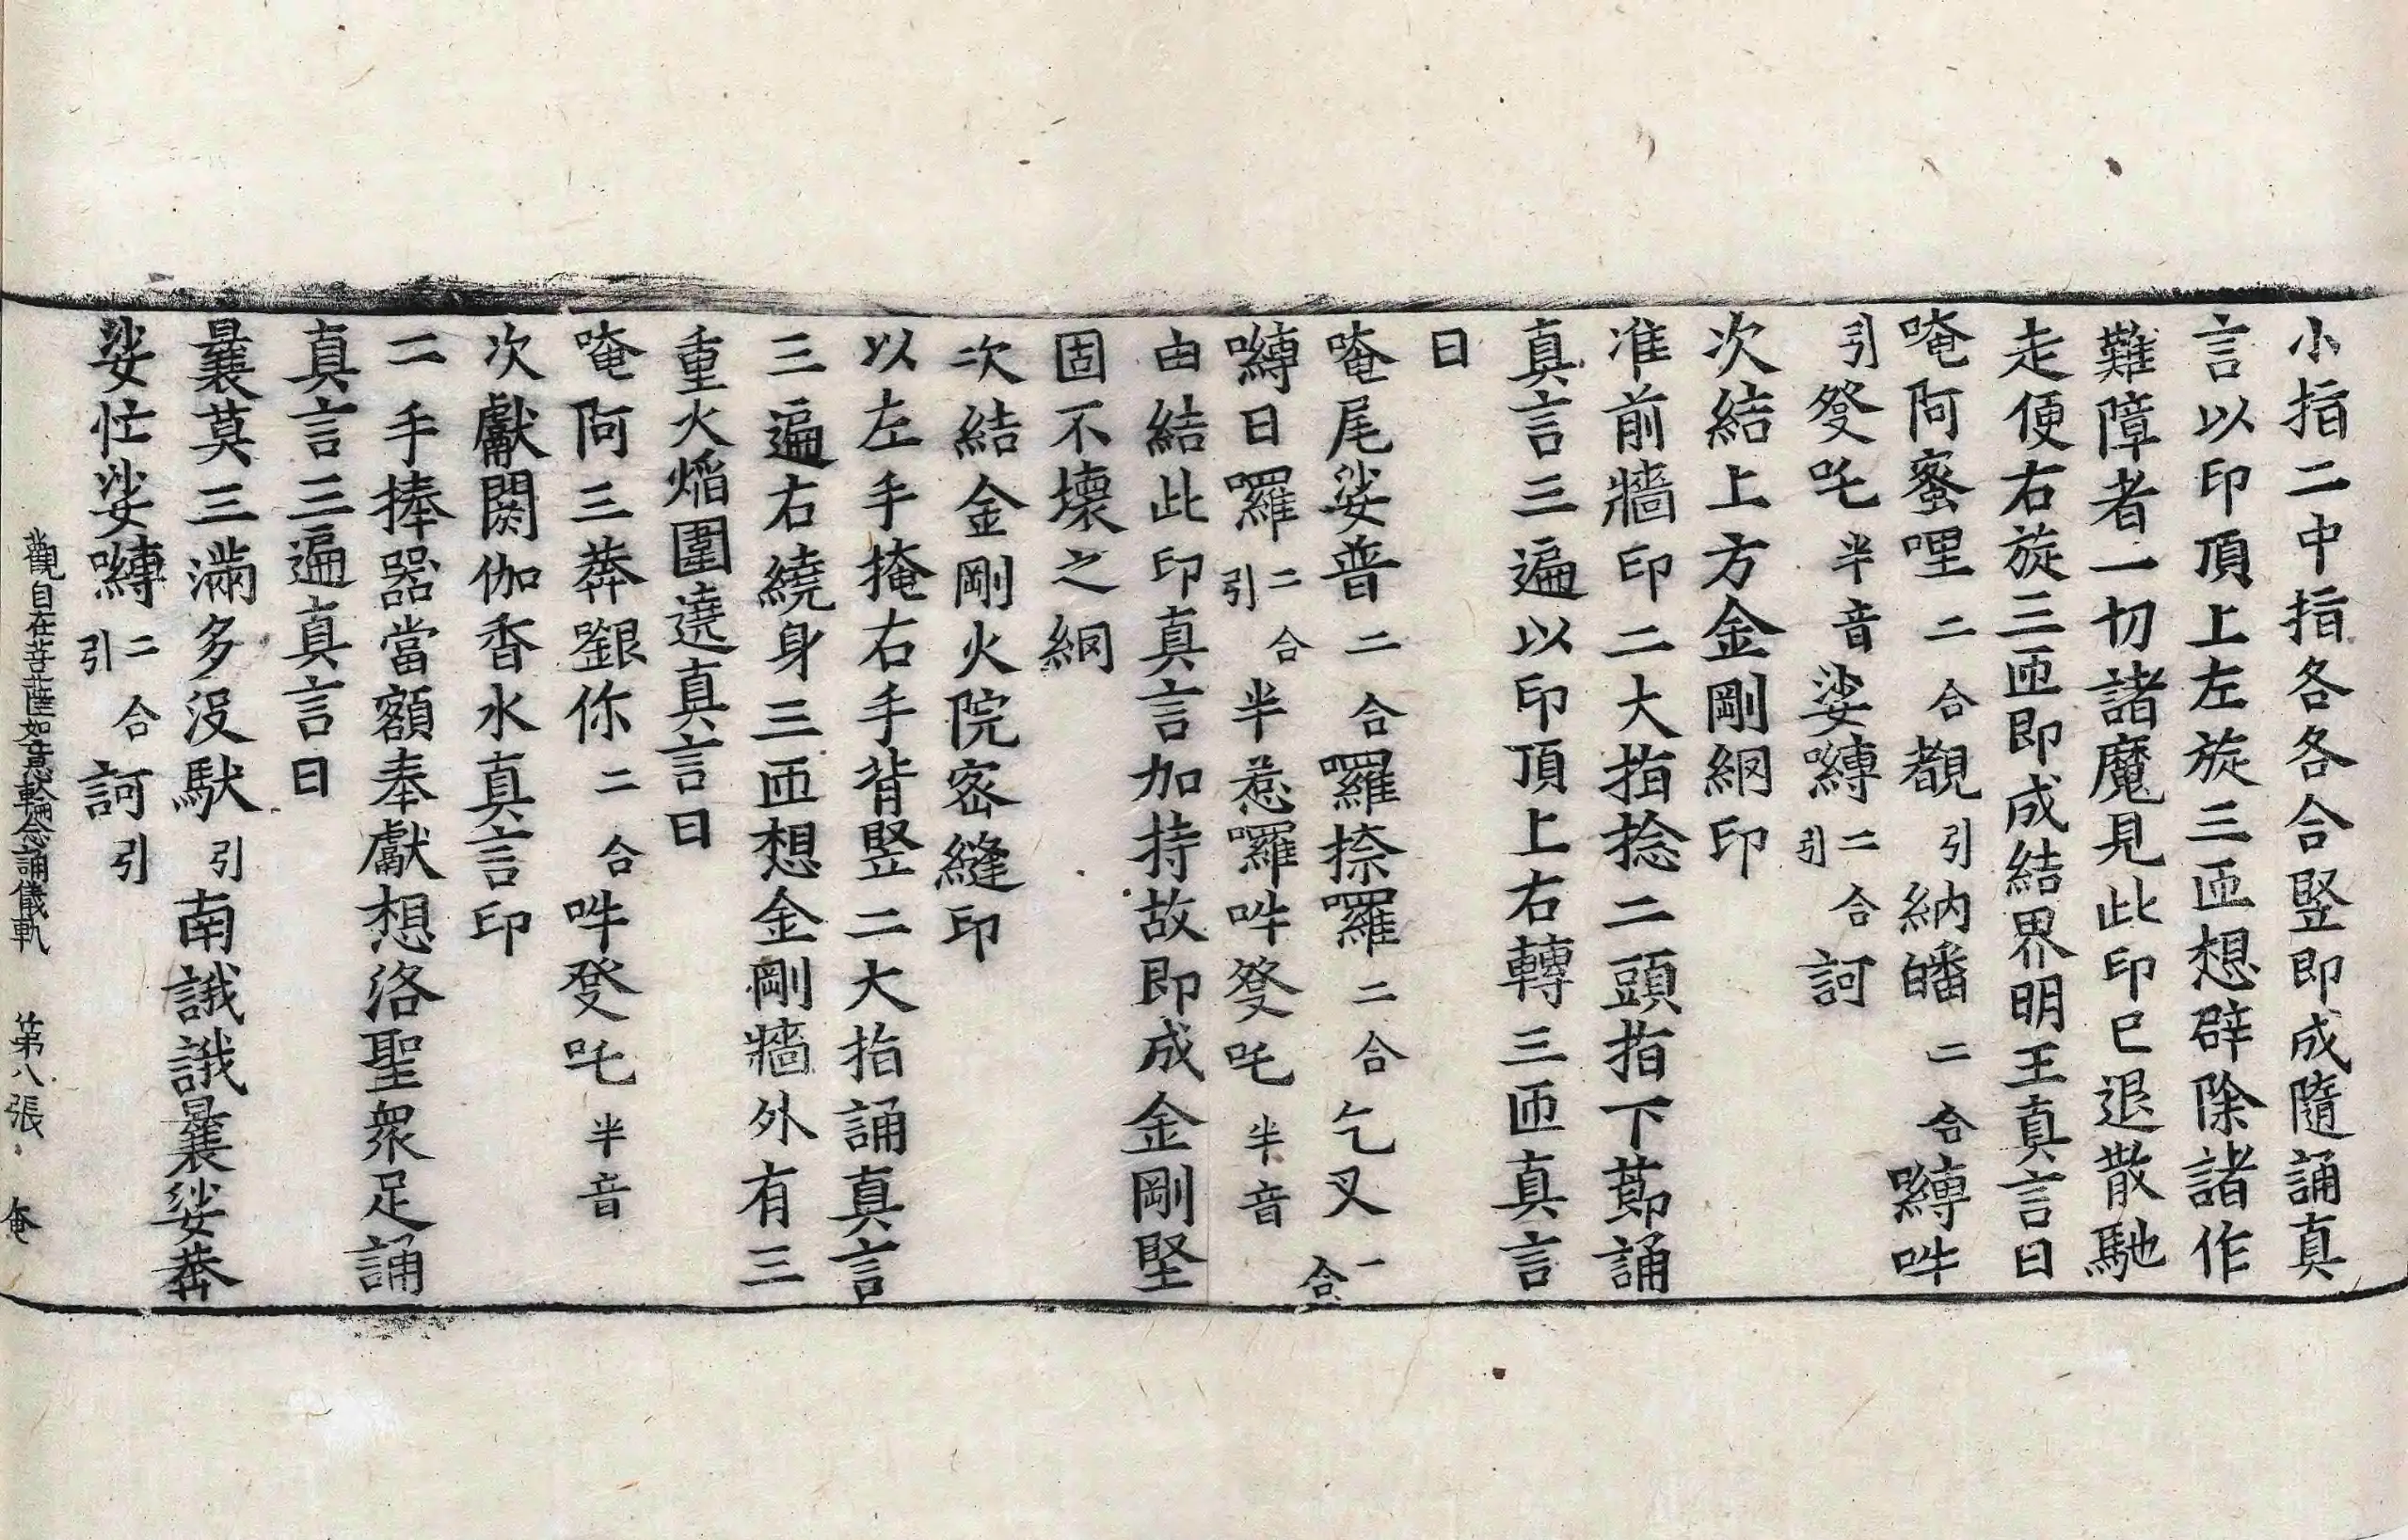 小指二中指各各合竪即成隨誦真
言以印頂上左旋三匝想辟除諸作
難障者一切諸魔見此印已退散馳
走便右旋三匝即成結界明王真言曰
唵阿蜜哩二合覩引納皤二合嚩吽
引發吒半音娑嚩二合引訶
次結上方金剛網印
准前牆印二大指捻二頭指下節誦
真言三遍以印頂上右轉三匝真言
曰
唵尾娑普二合囉捺囉二合乞叉一合
嚩日囉二合引半惹囉吽發吒半音
由結此印真言加持故即成金剛堅
固不壞之網
次結金剛火院密縫印
以左手掩右手背竪二大指誦真言
三遍右繞身三匝想金剛牆外有三
重火焰圍遶真言曰
唵阿三莽嚩你二合吽發吒半音
次獻閼伽香水真言印
二手捧器當額奉獻想洛聖眾足誦
真言三遍真言曰
曩莫三滿多沒馱引南誐誐曩娑莽
娑忙娑嚩二合引訶引
觀自在菩薩如意輪念誦儀軌 第八張 奄